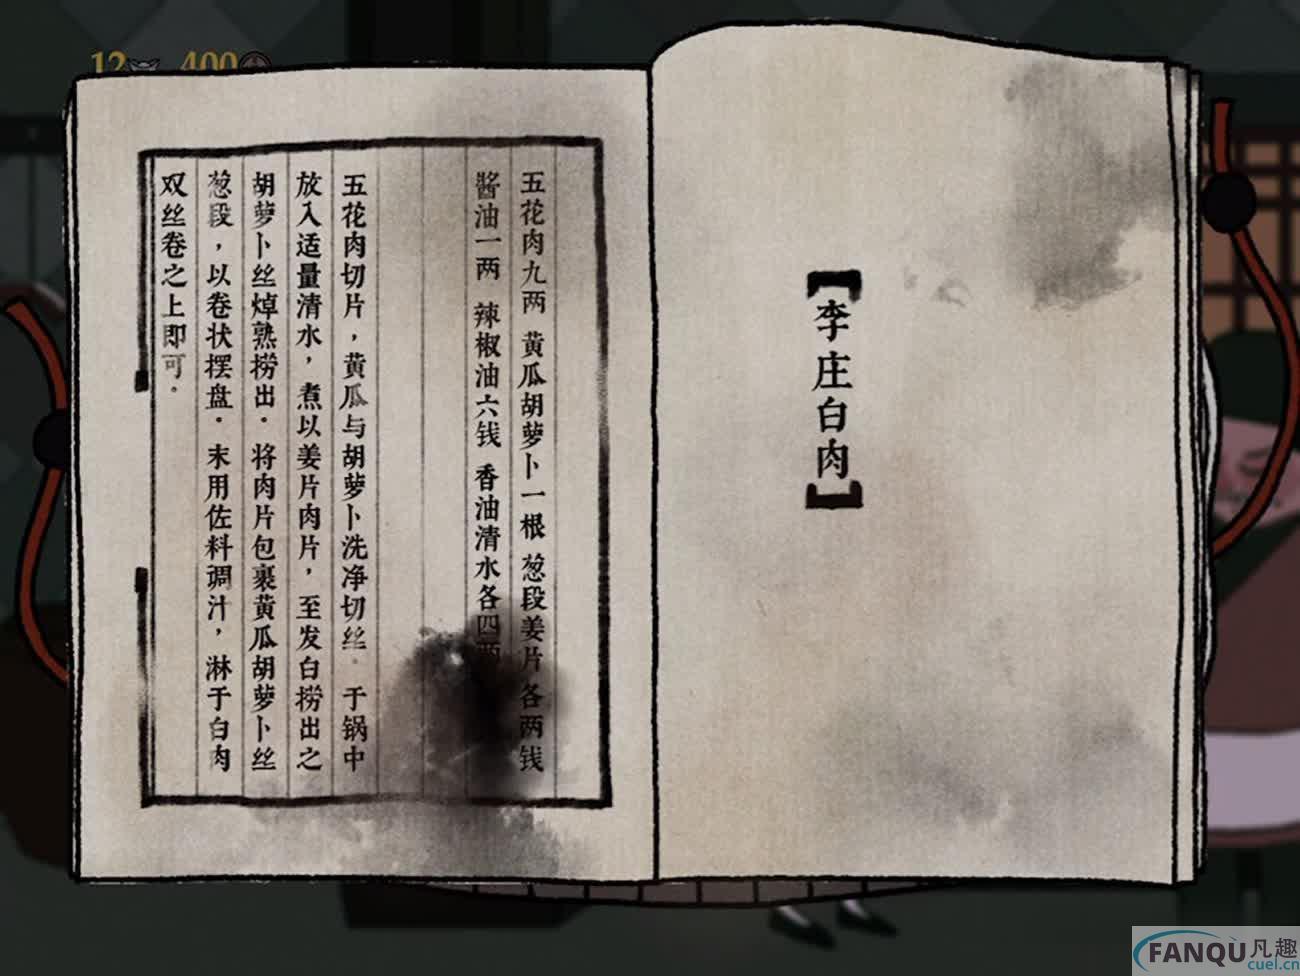 12 400
【李庄白肉】
五花肉九两 黄瓜胡萝卜一根 葱段姜片各两钱
酱油一两 辣椒油六钱 香油清水各四两
五花肉切片，黄瓜与胡萝卜洗净切丝。于锅中
放入适量清水，煮以姜片肉片，至发白捞出之
胡萝卜丝焯熟捞出。将肉片包裹黄瓜胡萝卜丝
葱段，以卷状摆盘。末用佐料调汁，淋于白肉
双丝卷之上即可。
FANQU凡趣
cuel.cn